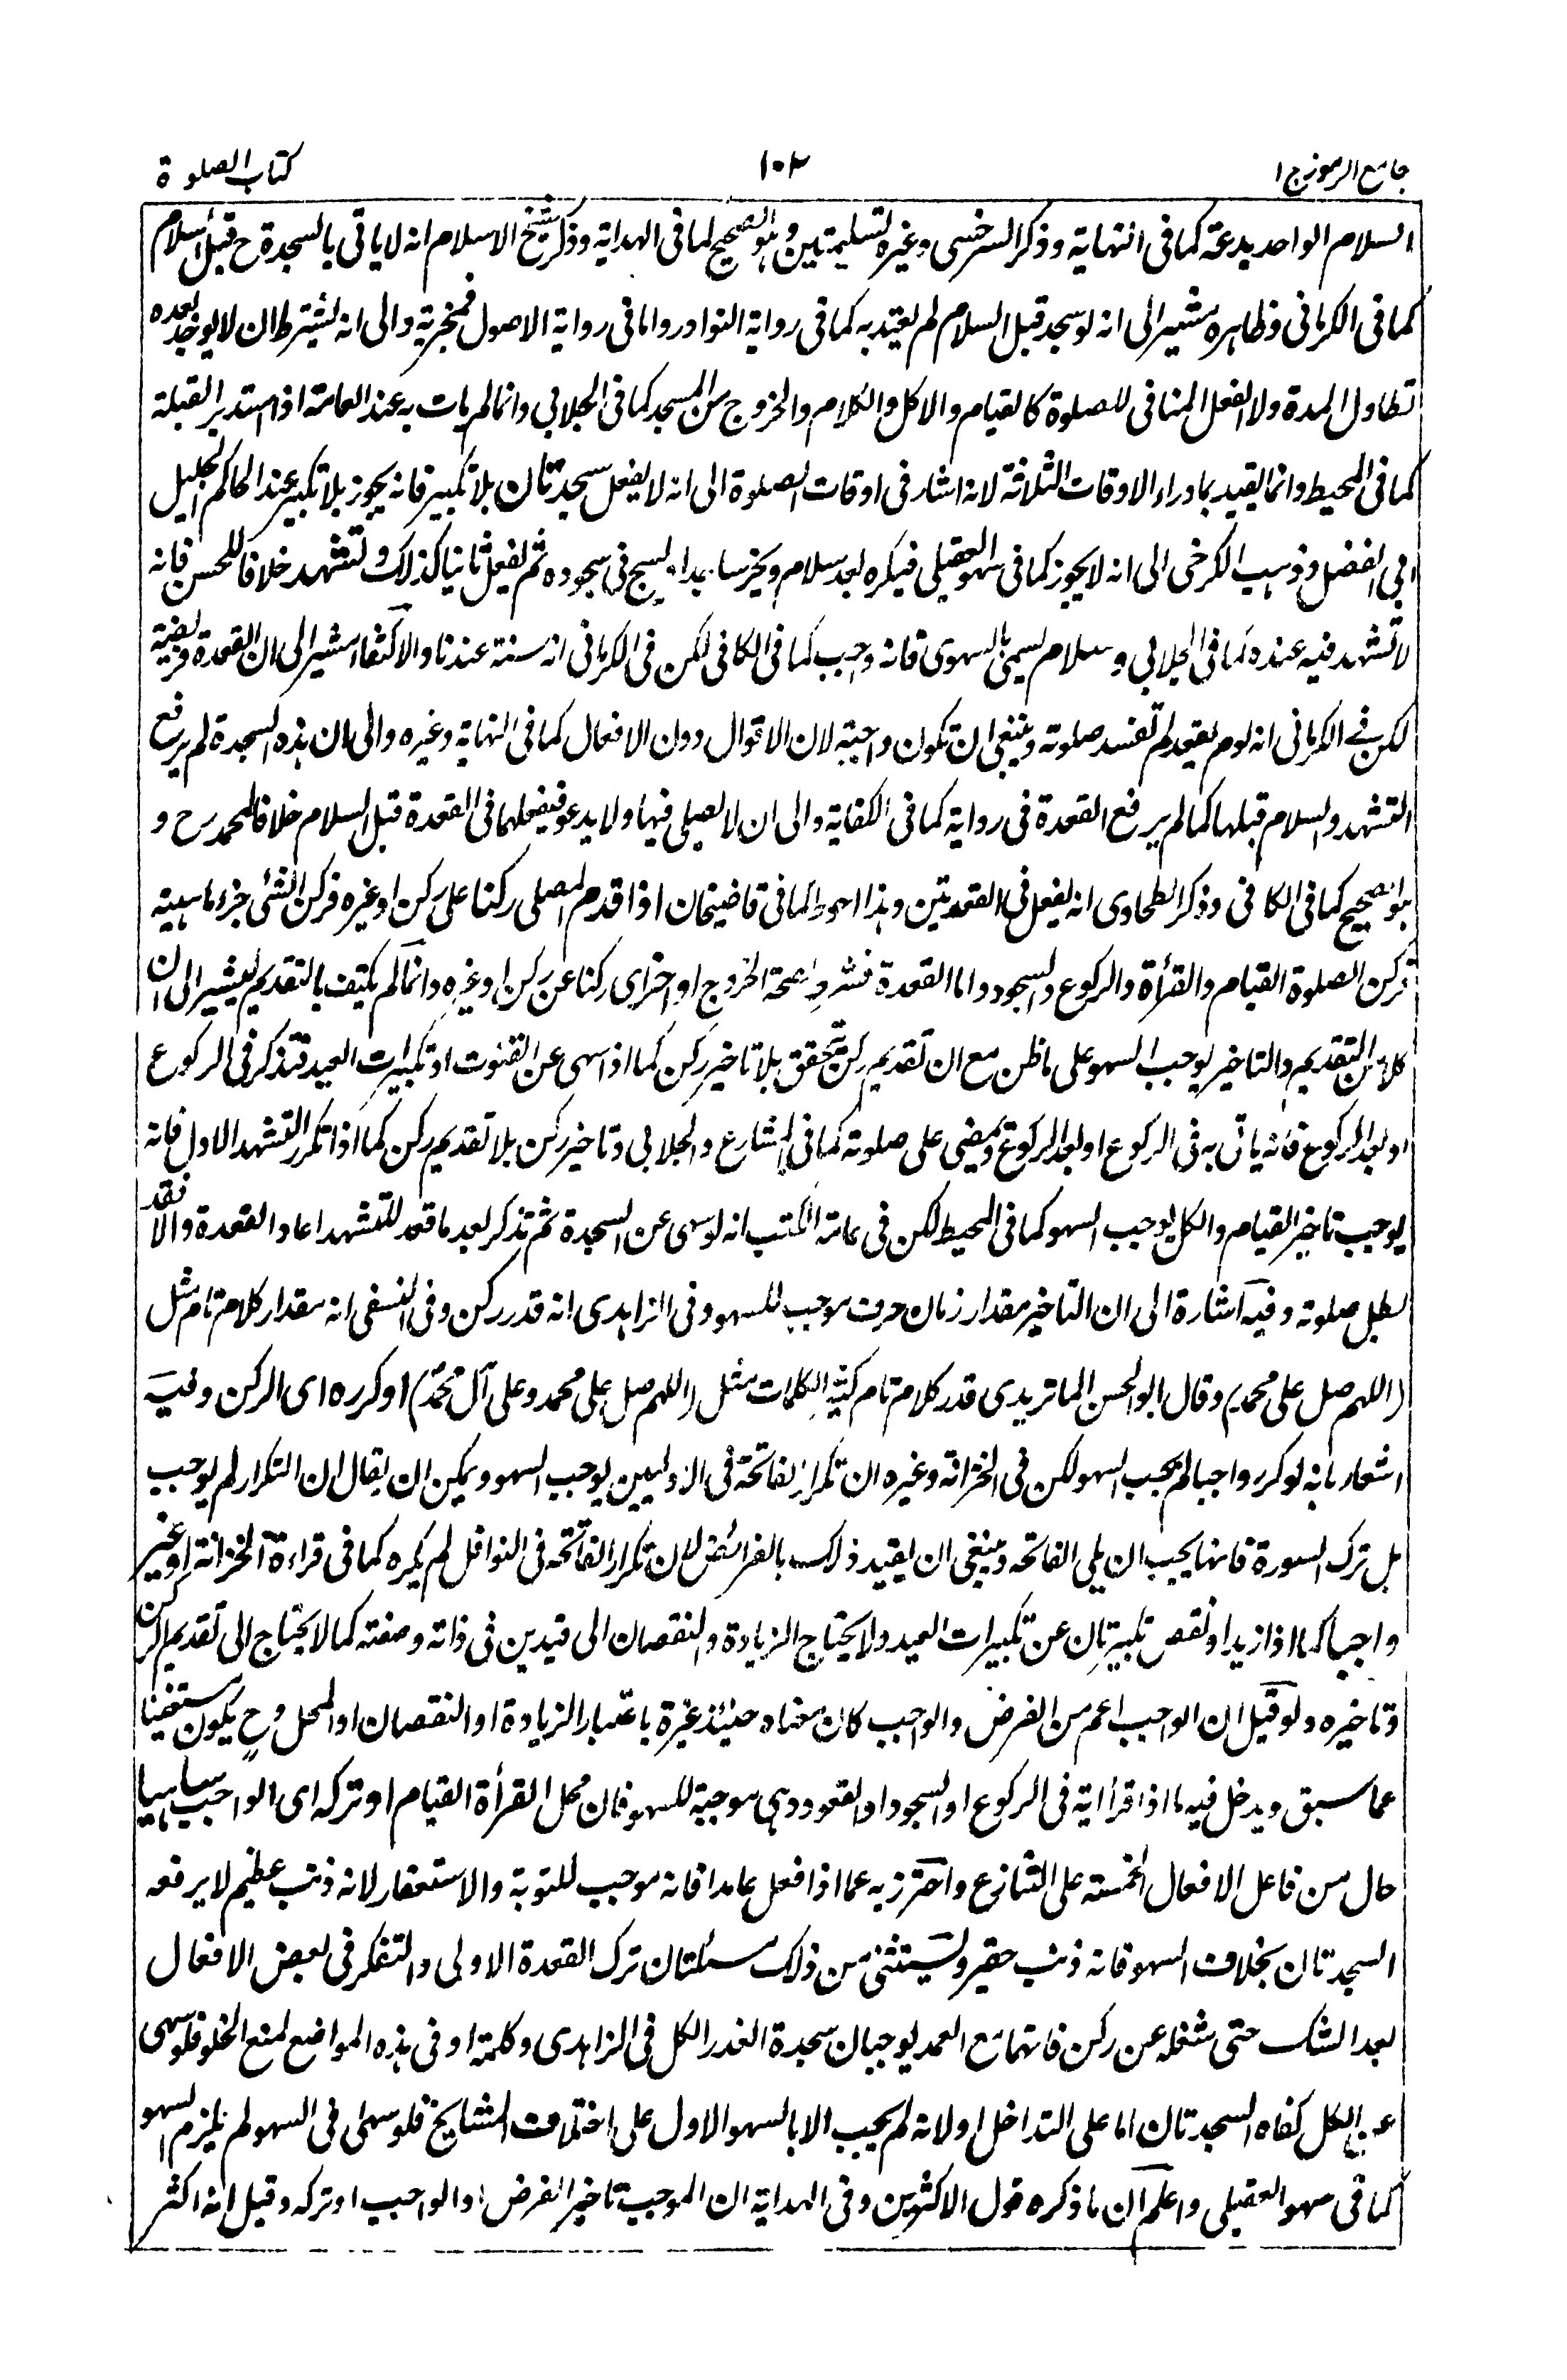 جامع الرموز ج ١
١٠٢
كتاب الصلوة
السلام الواحد بدعة كما فى النهاية وذكر السرخسى وغيره تسليمتين وهو الصحيح كما فى الهداية وذكر شيخ الاسلام انه لا ياتى بالسجدة ح قبل السلام
كما فى الكرمانى وظاهره مشير الى انه لو سجد قبل السلام لم يعتد به كما فى رواية النوادر واما فى رواية الاصول فمجزية والى انه يشترط ان لا يوجد بعده
تطاول المدة ولا الفعل المنافى للصلوة كالقيام والاكل والكلام والخروج من المسجد كما فى الجلابى وانما لم يات به عند العامة اذا استدبر القبلة
كما فى المحيط وانما لقيد بما وراء الاوقات الثلاثة لانه اشار فى اوقات الصلوة الى انه لا يفعل سجدتان بلا تكبير فانه يجوز بلا تكبير عند الحاكم الجليل
ابى الفضل وذهب الكرخى الى انه لا يجوز كما فى سهو العقيلى فيكره بعد سلام ويخر ساجدا يسبح فى سجوده ثم يفعل ثانيا كذلك وتشهد خلافا للحسن فانه
لا تشهد فيه عنده كما فى الجلابى وسلام يسمى بالسهوى فانه واجب كما فى الكافى لكن فى الكرمانى انه سنة عندنا والاكتفاء مشير الى ان القعدة فريضة
لكن فى الكرمانى انه لو لم يقعد لم تفسد صلوته وينبغى ان تكون واجبة لان الاقوال دون الافعال كما فى النهاية وغيره والى ان هذه السجدة لم يرفع
التشهد والسلام قبلها كما لم يرفع القعدة فى رواية كما فى الكفاية والى ان لا يصلى فيها ولا يدعو فيفعلهما فى القعدة قبل السلام خلافا لمحمد رح و
هو الصحيح كما فى الكافى وذكر الطحاوى انه يفعل فى القعدتين وهذا احوط كما فى قاضيخان اذا قدم المصلى ركنا على ركن او غيره فركن الشئ جزء ماهيته
فركن الصلوة القيام والقرأة والركوع والسجود واما القعدة فشرط صحة الخروج او اخر اى ركنا عن ركن او غيره وانما لم يكتف بالتقديم ليشير الى ان
كلا من التقديم والتاخير يوجب السهو على ما ظن مع ان تقديم ركن يتحقق بلا تاخير ركن كما اذا سهى عن القنوت او تكبيرات العيد فتذكر فى الركوع
او بعد الركوع فانه يأتى به فى الركوع او بعد الركوع ويمضى على صلوته كما فى المشارع والجلابى وتاخير ركن بلا تقديم ركن كما اذا تكرر التشهد الاول فانه
يوجب تاخير القيام والكل يوجب السهو كما فى المحيط لكن فى عامة الكتب انه لو سهى عن السجدة ثم تذكر بعد ما قعد للتشهد اعاد القعدة والا فقد
بطل صلوته وفيه اشارة الى ان التاخير مقدار زمان حرف موجب للسهو وفى الزاهدى انه قدر ركن وفى النسفى انه مقدار كلام تام مثل
(اللهم صل على محمد) وقال ابو الحسن الماتريدى قدر كلام تام كثير الكلمات مثل (اللهم صل على محمد وعلى آل محمد) او كرره اى الركن وفيه
اشعار بانه لو كرر واجبا لم يجب السهو لكن فى الخزانة وغيره ان تكرار الفاتحة فى الاوليين يوجب السهو ويمكن ان يقال ان التكرار لم يوجب
بل ترك السورة فانها يجب ان يلى الفاتحة وينبغى ان يقيد ذلك بالفرائض لان تكرار الفاتحة فى النوافل لم يكره كما فى قراءة الخزانة او غير
واجبا كما اذا زيد او نقص تكبيرتان عن تكبيرات العيد ولا يحتاج الزيادة والنقصان الى قيدين فى ذاته وصفته كما لا يحتاج الى تقديم الركن
وتاخيره ولو قيل ان الواجب اعم من الفرض والواجب كان معناه حينئذ غيره باعتبار الزيادة او النقصان او المحل وح يكون مستغنيا
عما سبق ويدخل فيه ما اذا قرأ اية فى الركوع او السجود او القعود وهى موجبة للسهو فان محل القرأة القيام او تركه اى الواجب ساهيا
حال من فاعل الافعال الخمسة على التنازع واحترز به عما اذا فعل عامدا فانه موجب للتوبة والاستغفار لانه ذنب عظيم لا يرفعه
السجدتان بخلاف السهو فانه ذنب حقير ويستثنى من ذلك مسئلتان ترك القعدة الاولى والتفكر فى بعض الافعال
بعد الشك حتى شغله عن ركن فانهما مع العمد يوجبان سجدة العذر الكل فى الزاهدى وكلمة او فى هذه المواضع لمنع الخلو فلو سهى
عن الكل كفاه السجدتان اما على التداخل او لانه لم يجب الا بالسهو الاول على اختلاف المشايخ فلو سهى فى السهو لم يلزم السهو
كما فى سهو العقيلى واعلم ان ما ذكره قول الاكثرين وفى الهداية ان الموجب تاخير الفرض او الواجب او تركه وقيل انه اكثر